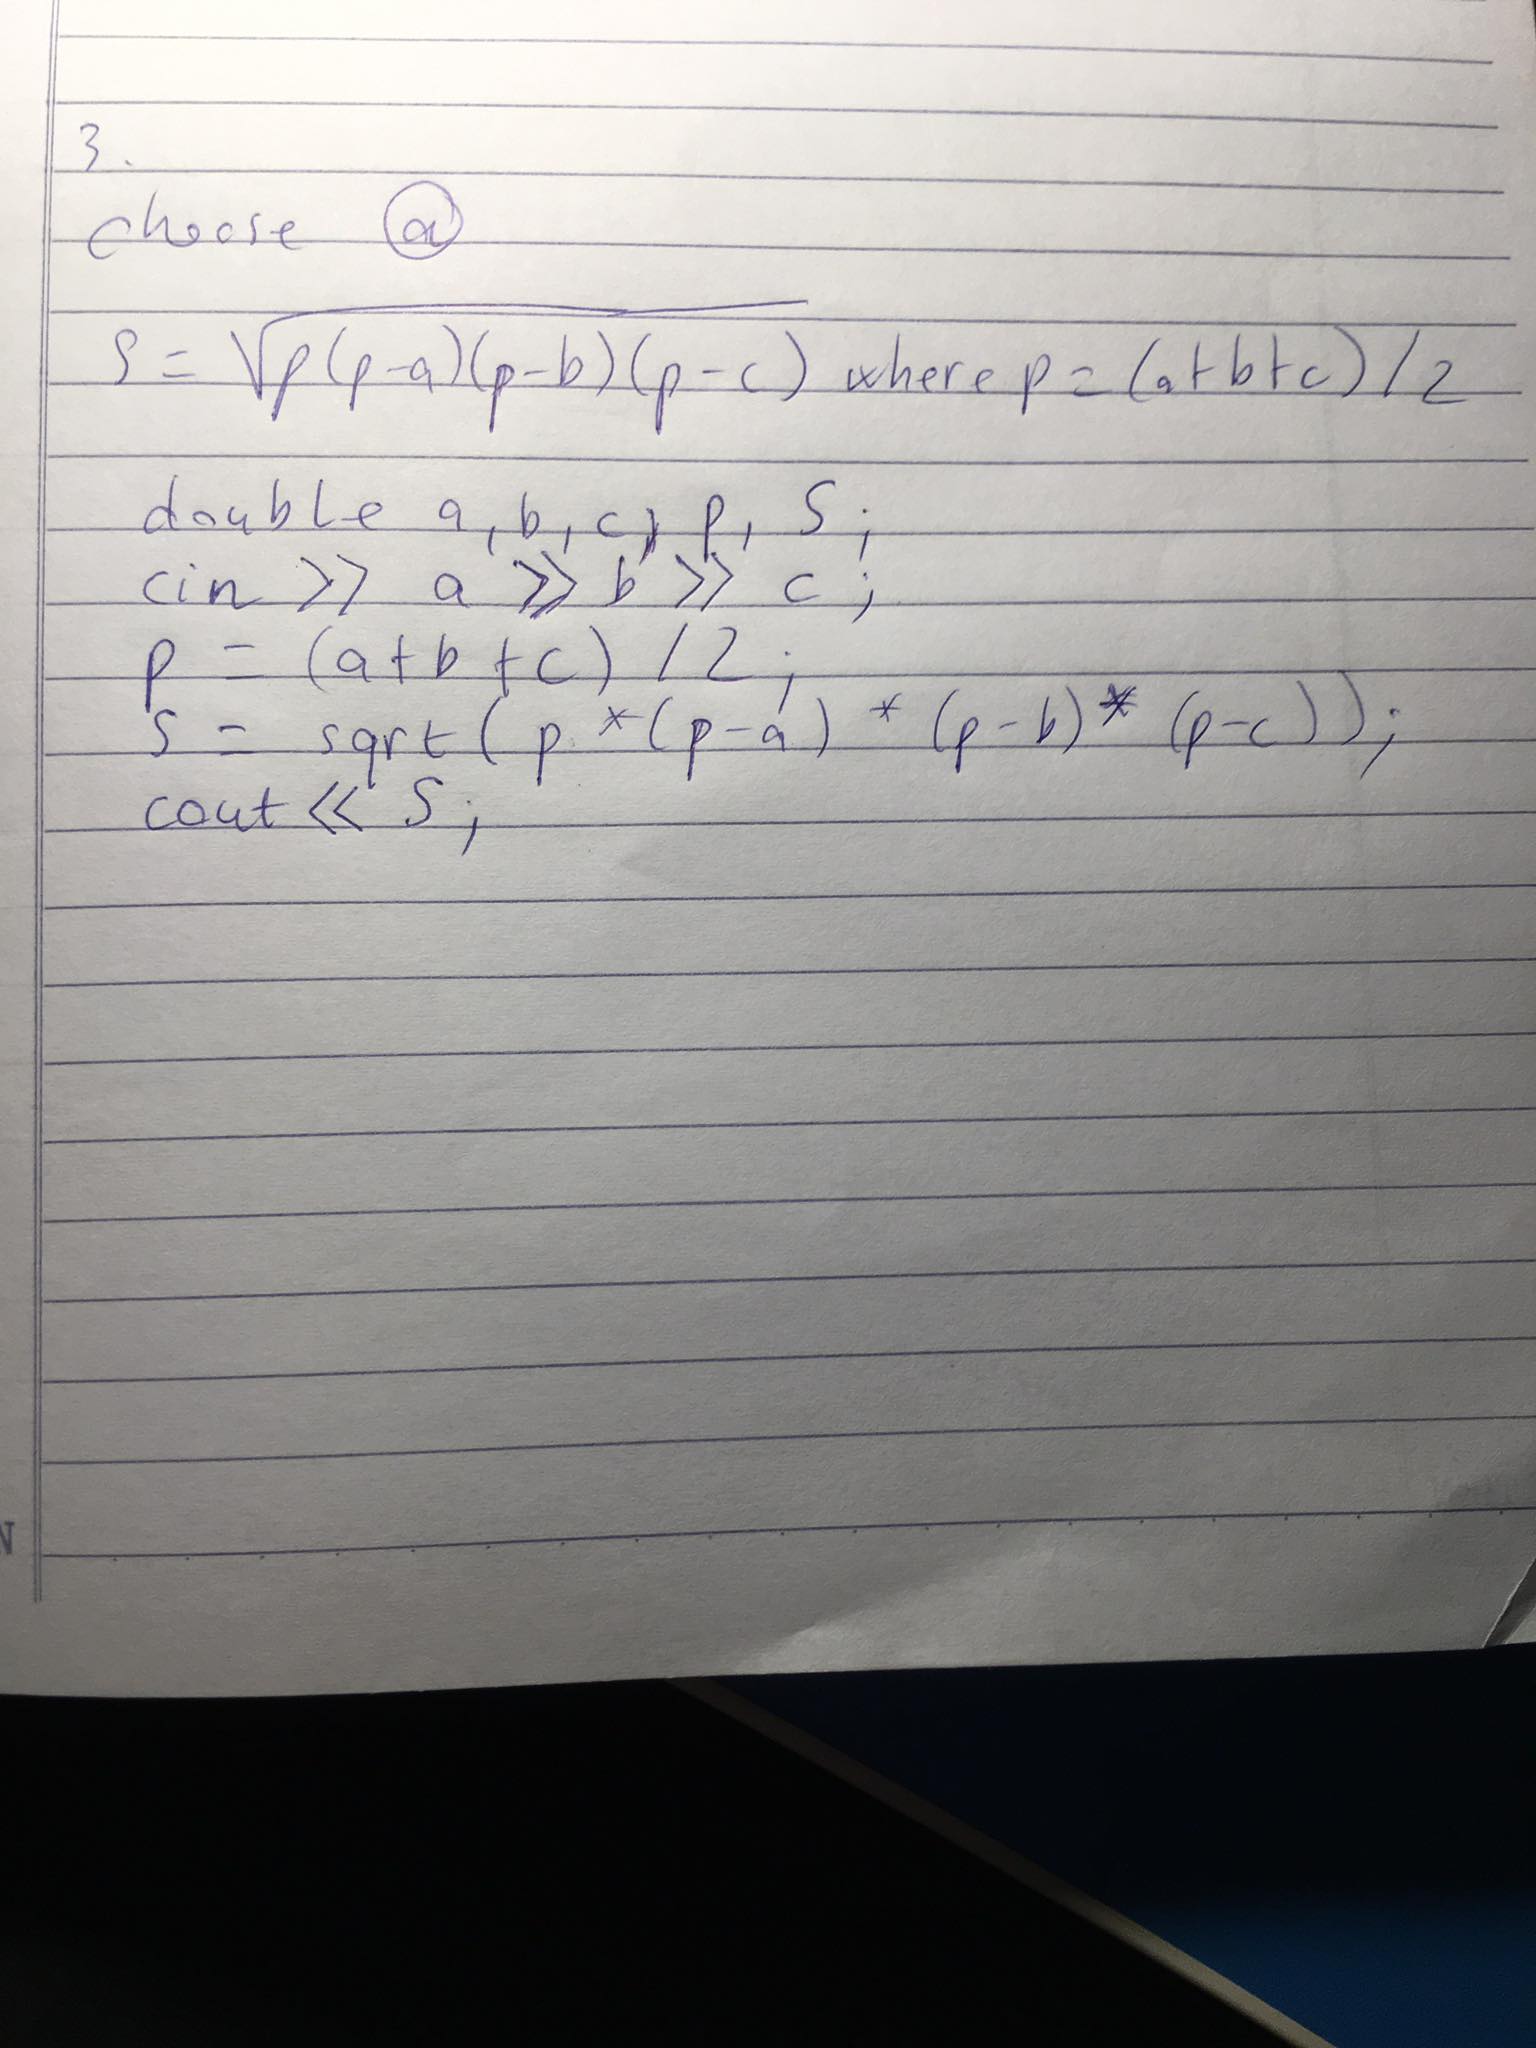 3.
choose ⓐ
S = √p(p-a)(p-b)(p-c) where p = (a+b+c)/2
double a, b, c, p, S;
cin >> a >> b >> c;
p = (a+b+c) /2;
S = sqrt( p *(p-a) * (p-b)* (p-c));
cout << S;
N